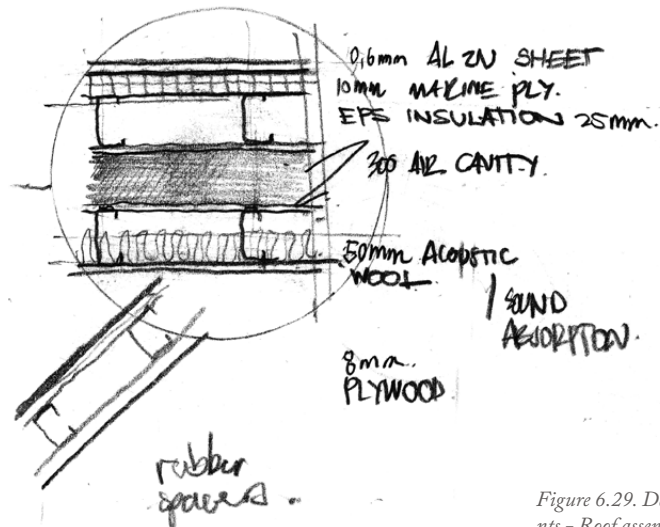 0,6mm AL ZN SHEET
10mm MARINE PLY.
EPS INSULATION 25mm.
300 AIR CAVITY.
50mm ACOUSTIC
WOOL.
SOUND
ABSORPTION.
8mm.
PLYWOOD
rubber
spacers.
Figure 6.29. D
nts – Roof assem